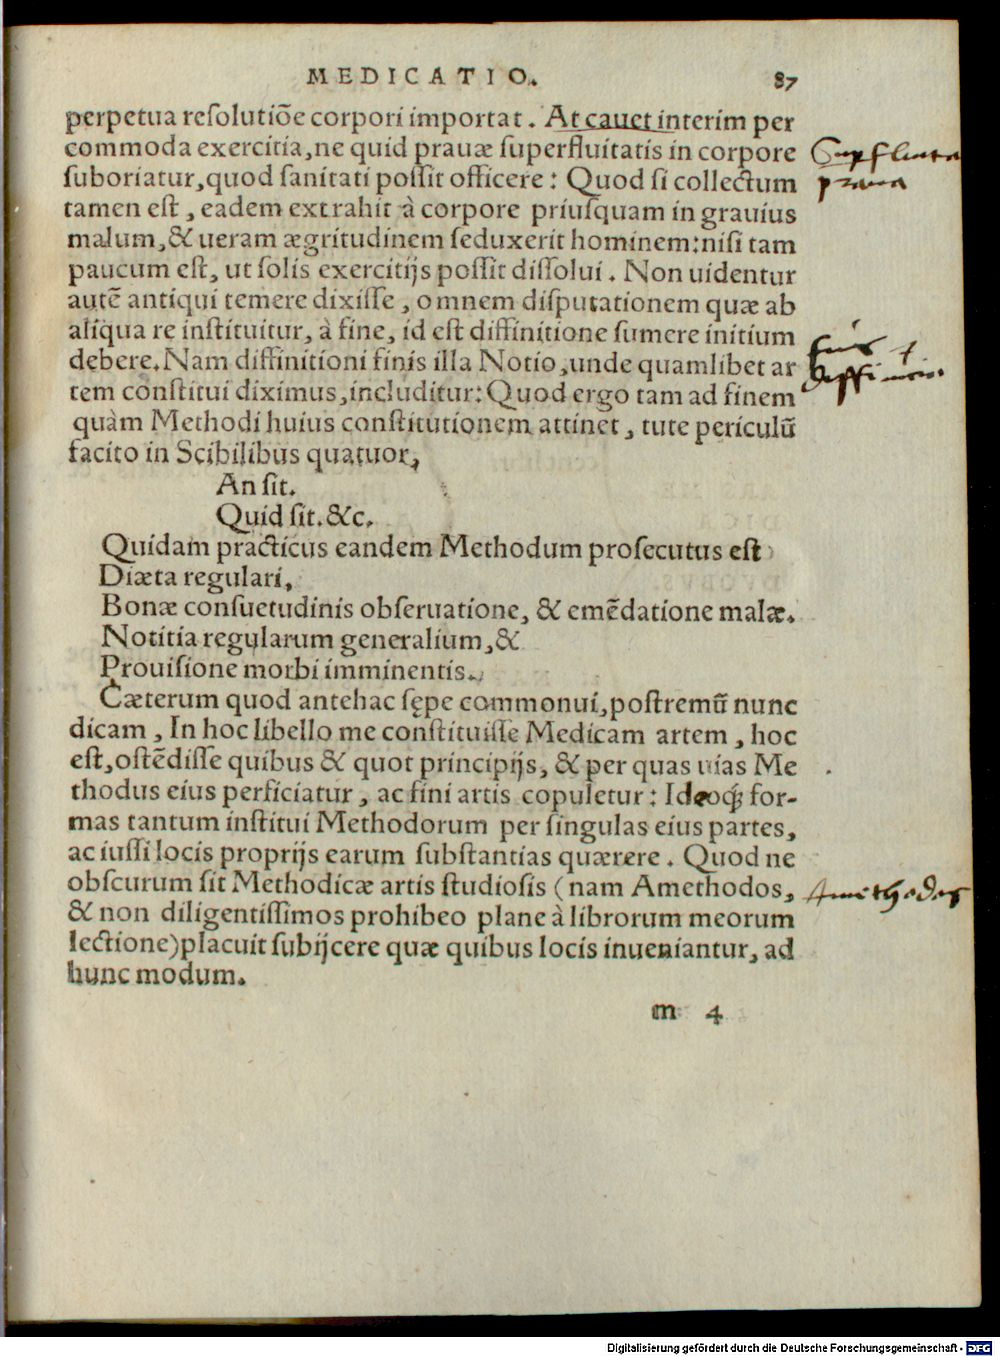 MEDICATIO. 87
perpetua reſolutiõe corpori importat. At cauet interim per
commoda exercitia, ne quid prauæ ſuperfluitatis in corpore
ſuboriatur, quod ſanitati poſſit officere: Quod ſi collectum
tamen eſt, eadem extrahit à corpore priuſquam in grauius
malum, & ueram ægritudinem ſeduxerit hominem: niſi tam
paucum eſt, ut ſolis exercitijs poſſit diſſolui. Non uidentur
autẽ antiqui temere dixiſſe, omnem diſputationem quæ ab
aliqua re inſtituitur, à fine, id eſt diffinitione ſumere initium
debere. Nam diffinitioni finis illa Notio, unde quamlibet ar
tem conſtitui diximus, includitur: Quod ergo tam ad finem
quàm Methodi huius conſtitutionem attinet, tute periculũ
facito in Scibilibus quatuor,
An ſit.
Quid ſit. &c.
Quidam practicus eandem Methodum proſecutus eſt
Diæta regulari,
Bonæ conſuetudinis obſeruatione, & emẽdatione malæ.
Notitia regularum generalium, &
Prouiſione morbi imminentis.
Cæterum quod antehac ſępe commonui, poſtremũ nunc
dicam, In hoc libello me conſtituiſſe Medicam artem, hoc
eſt, oſtẽdiſſe quibus & quot principijs, & per quas uias Me
thodus eius perficiatur, ac fini artis copuletur: Ideoq́; for-
mas tantum inſtitui Methodorum per ſingulas eius partes,
ac iuſſi locis proprijs earum ſubſtantias quærere. Quod ne
obſcurum ſit Methodicæ artis ſtudioſis (nam Amethodos,
& non diligentiſſimos prohibeo plane à librorum meorum
lectione) placuit ſubijcere quæ quibus locis inueniantur, ad
hunc modum.
m 4
praua
finis
Amethodos
Digitalisierung gefördert durch die Deutsche Forschungsgemeinschaft - DFG